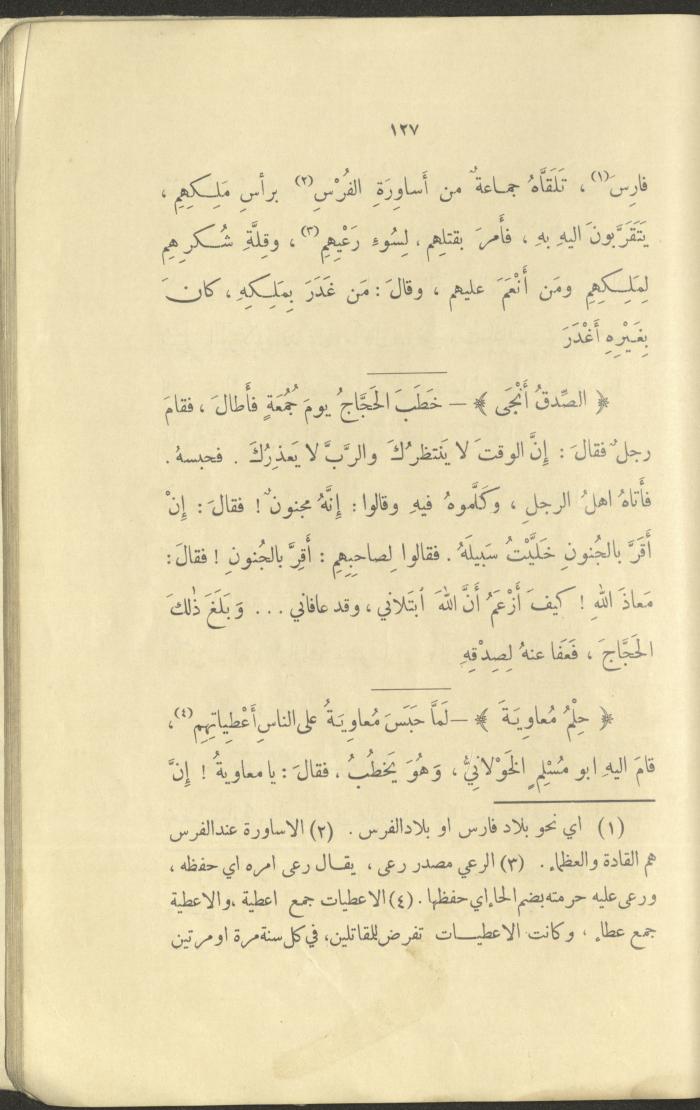 ١٢٧
فارِسَ(١) ، تَلَقَّاهُ جماعةٌ من أَساوِرَةِ الفُرْسِ(٢) برأسِ مَلِكِهِمِ ،
يَتَقَرَّبونَ اليهِ بهِ ، فأَمرَ بقتلِهم ، لِسُوءِ رَعْيِهِمِ(٣) ، وقِلَّةِ شُكرِهِمِ
لِمَلِكِهِمِ ومَن أَنْعَمَ عليهم ، وقالَ : مَن غَدَرَ بِمَلِكِهِ ، كانَ
بِغَيْرِهِ أَغْدَرَ
﴿ الصِّدقُ أَنْجَى ﴾ — خَطَبَ الحَجَّاجُ يومَ جُمُعَةٍ فأَطالَ ، فقامَ
رجلٌ فقالَ : إِنَّ الوقتَ لا يَنتظرُكَ والرَّبَّ لا يَعذرُكَ . فحبسهُ .
فأَتاهُ اهلُ الرجلِ ، وكَلَّموهُ فيهِ وقالوا : إِنَّهُ مجنونٌ ! فقالَ : إِنْ
أَقَرَّ بالجُنونِ خَلَّيْتُ سَبيلَهُ . فقالوا لِصاحبِهِمِ : أَقِرَّ بالجُنونِ ! فقالَ :
مَعاذَ اللهِ ! كيفَ أَزْعَمُ أَنَّ اللهَ ٱبتَلاني ، وقد عافاني ... وَبَلَغَ ذٰلكَ
الحَجَّاجَ ، فَعَفا عنهُ لِصِدْقِهِ
﴿ حِلْمُ مُعاوِيَةَ ﴾ — لَمَّا حَبَسَ مُعاوِيَةُ على الناسِ أَعْطِياتِهِمِ(٤) ،
قامَ اليهِ ابو مُسْلِمٍ الخَوْلانِيُّ ، وَهُوَ يَخطُبُ ، فقالَ : يا معاويةُ ! إِنَّ
(١) اي نحو بلاد فارس او بلاد الفرس . (٢) الاساورة عند الفرس
هم القادة والعظماء . (٣) الرعي مصدر رعى ، يقال رعى امره اي حفظه ،
ورعى عليه حرمته بضم الحاء اي حفظها . (٤) الاعطيات جمع اعطية ، والاعطية
جمع عطاء . وكانت الاعطيات تفرض للمقاتلين ، في كل سنة مرة او مرتين